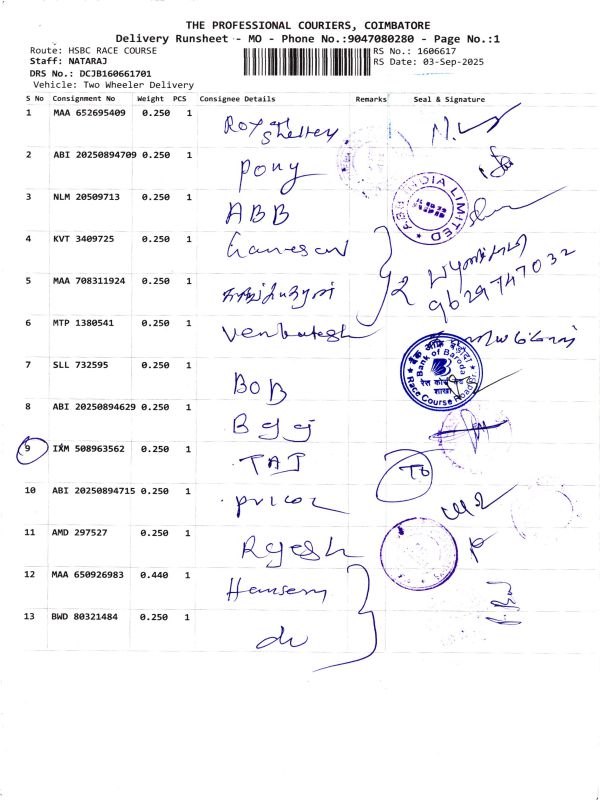 THE PROFESSIONAL COURIERS, COIMBATORE
Delivery Runsheet - MO - Phone No.:9047080280 - Page No.:1
Route: HSBC RACE COURSE
RS No.: 1606617
Staff: NATARAJ
RS Date: 03-Sep-2025
DRS No.: DCJB160661701
Vehicle: Two Wheeler Delivery
S No Consignment No Weight PCS Consignee Details Remarks Seal & Signature
1 MAA 652695409 0.250 1 Royal
2 ABI 20250894709 0.250 1 Pony
3 NLM 20509713 0.250 1 ABB
ABB INDIA LIMITED
ABB
4 KVT 3409725 0.250 1 Ganesan
5 MAA 708311924 0.250 1
2
9629747032
6 MTP 1380541 0.250 1 Venkatesh
7 SLL 732595 0.250 1 BOB
बैंक ऑफ़ बड़ौदा
Bank of Baroda
रेस कोर्स रोड
शाखा
Race Course Road Br.
8 ABI 20250894629 0.250 1
9 IXM 508963562 0.250 1 TAJ
10 ABI 20250894715 0.250 1 Pricol
11 AMD 297527 0.250 1 Rgesh
12 MAA 650926983 0.440 1
13 BWD 80321484 0.250 1 do